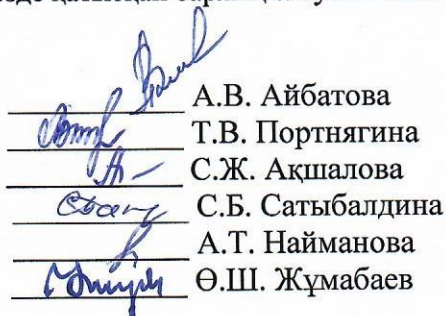 А.В. Айбатова
Т.В. Портнягина
С.Ж. Ақшалова
С.Б. Сатыбалдина
А.Т. Найманова
Ө.Ш. Жұмабаев